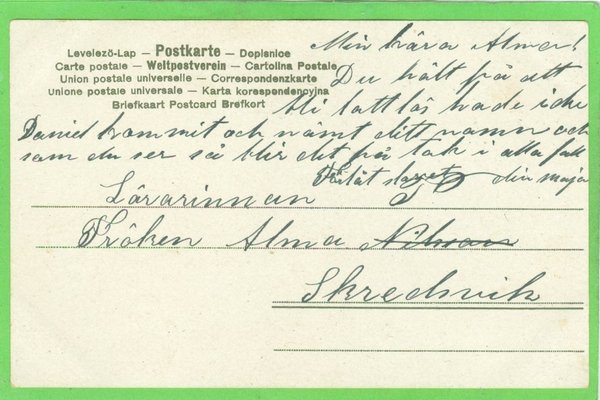 Levelezö-Lap — Postkarte — Dopisnice
Carte postale — Weltpostverein — Cartolina Postale
Union postale universelle — Correspondenzkarte
Unione postale universale — Karta korespondencyjna
Briefkaart Postcard Brefkort
Min kära Alma!
Du hält på att
bli lottlös hade icke
Daniel kommit och nämt ditt namn och
som du ser så blir det på tok i alla fall
Förlåt din Maja
Lärarinnan
Fröken Alma
Skredsvik